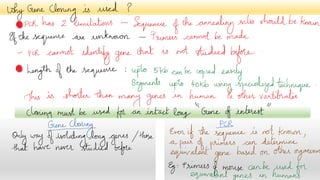 Why Gene Cloning is used ?
PCR has 2 limitations - Sequence of the annealing sites should be known
If the sequence are unknown - Primers cannot be made.
- PCR cannot identify gene that is not studied before.
Length of the sequence : upto 5kb can be copied easily
Segments upto 40kb using specialized technique.
This is shorter than many genes in human & other vertebrates
Cloning must be used for an intact long "Gene of interest"
Gene Cloning
Only way of isolating long genes / those
that have never studied before.
PCR
Even if the sequence is not known,
a pair of primers can determine
equivalent gene based on other
Eg: Primers of mouse can be used for
equivalent genes in humans